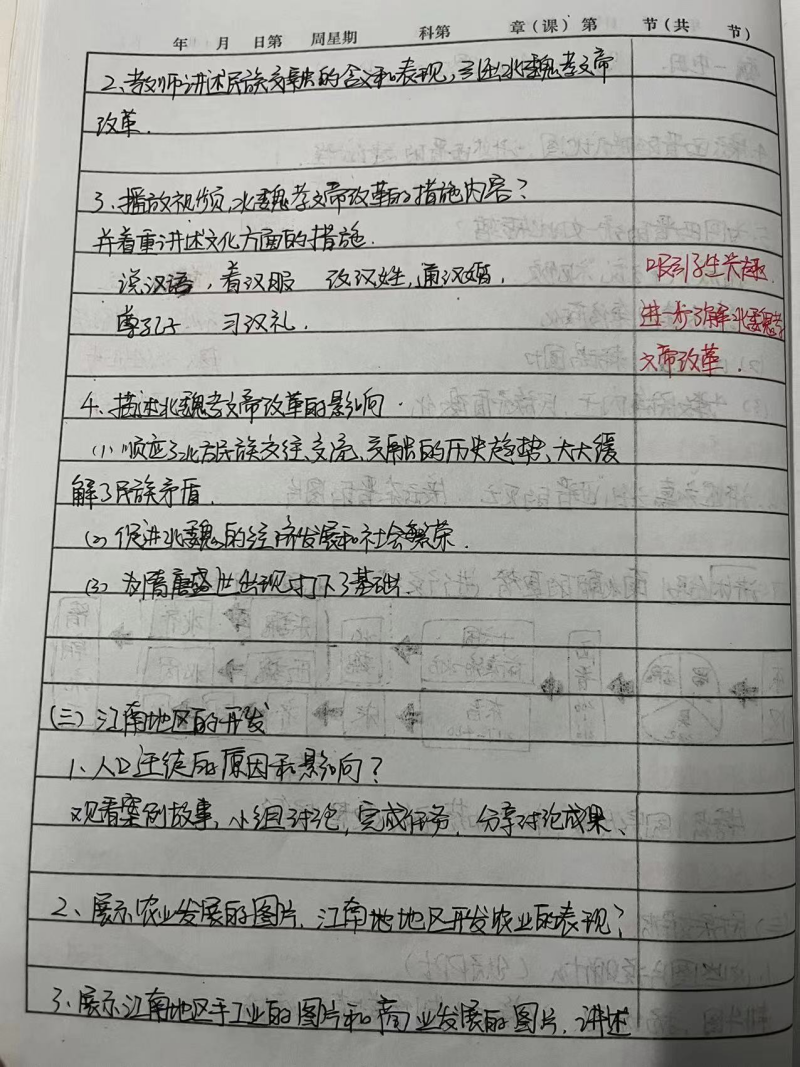 年 月 日第 周星期 科第 章(课)第 节(共 节)
2、教师讲述民族交融的含义和表现,引出北魏孝文帝
改革.
3、播放视频,北魏孝文帝改革的措施内容?
并着重讲述文化方面的措施.
说汉语,着汉服 改汉姓,通汉婚,
尊孔子 习汉礼.
吸引学生兴趣.
进一步了解北魏孝
文帝改革.
4、描述北魏孝文帝改革的影响.
(1)顺应了北方民族交往、交流、交融的历史趋势,大大缓
解了民族矛盾.
(2)促进北魏的经济发展和社会繁荣.
(3)为隋唐盛世出现打下了基础.
(三)江南地区的开发
1、人口迁徙的原因和影响?
观看案例故事,小组讨论,完成任务,分享讨论成果、
2、展示农业发展的图片.江南地地区开发农业的表现?
3、展示江南地区手工业的图片和商业发展的图片.讲述